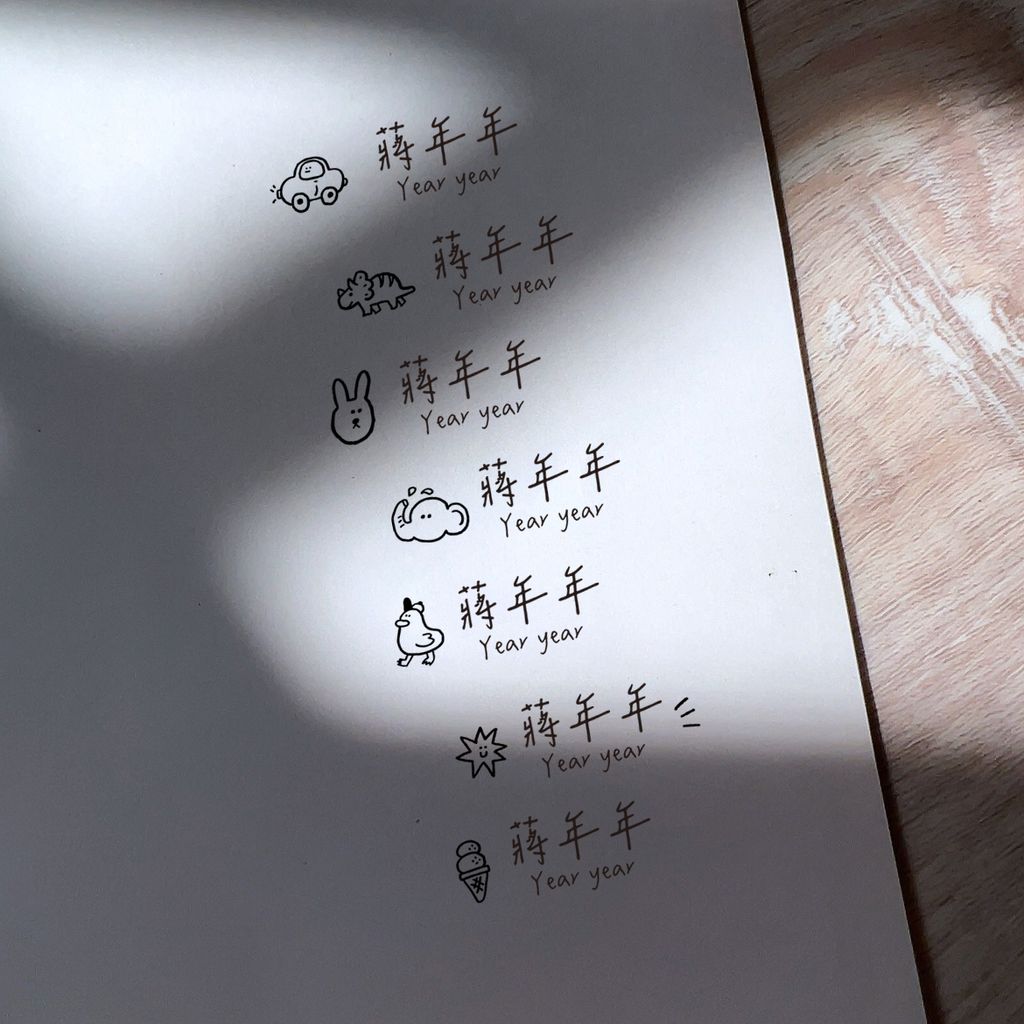 蔣年年
Year year
蔣年年
Year year
蔣年年
Year year
蔣年年
Year year
蔣年年
Year year
蔣年年
Year year
蔣年年
Year year